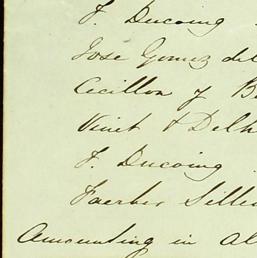 F. Ducoing
Jose Gomez del
Cecillon y B
Vinet & Delh
F. Ducoing
Faerber Sille
Amounting in al